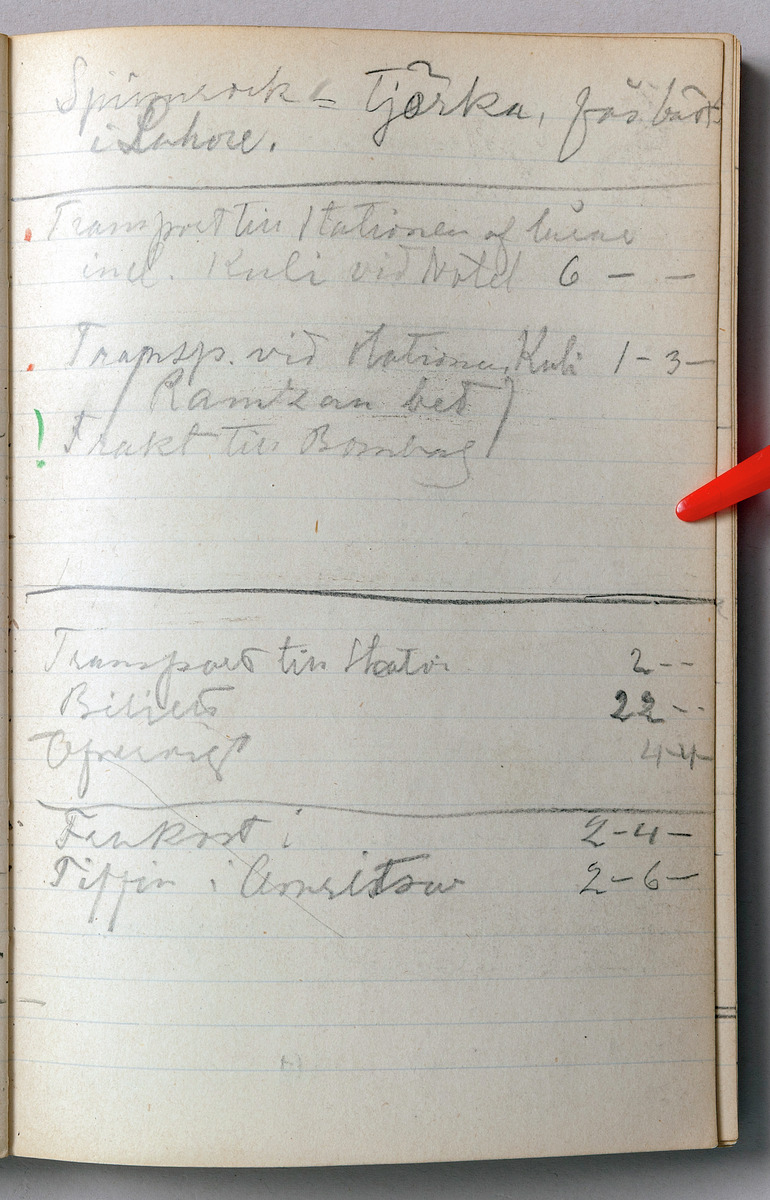 Spinnrock = Tjarka, fås bäst
i Lahore.
Transport till Stationen af
incl. Kuli vid Hotel 6 - -
Transp. vid stationen, Kuli 1-3-
(Ramzan bet)
Frakt till Bombay
Transport till Station 2 - -
Biljett 22 - -
Öfvervigt 4-4-
Frukost i 2-4-
Tiffin i Amritsar 2-6-